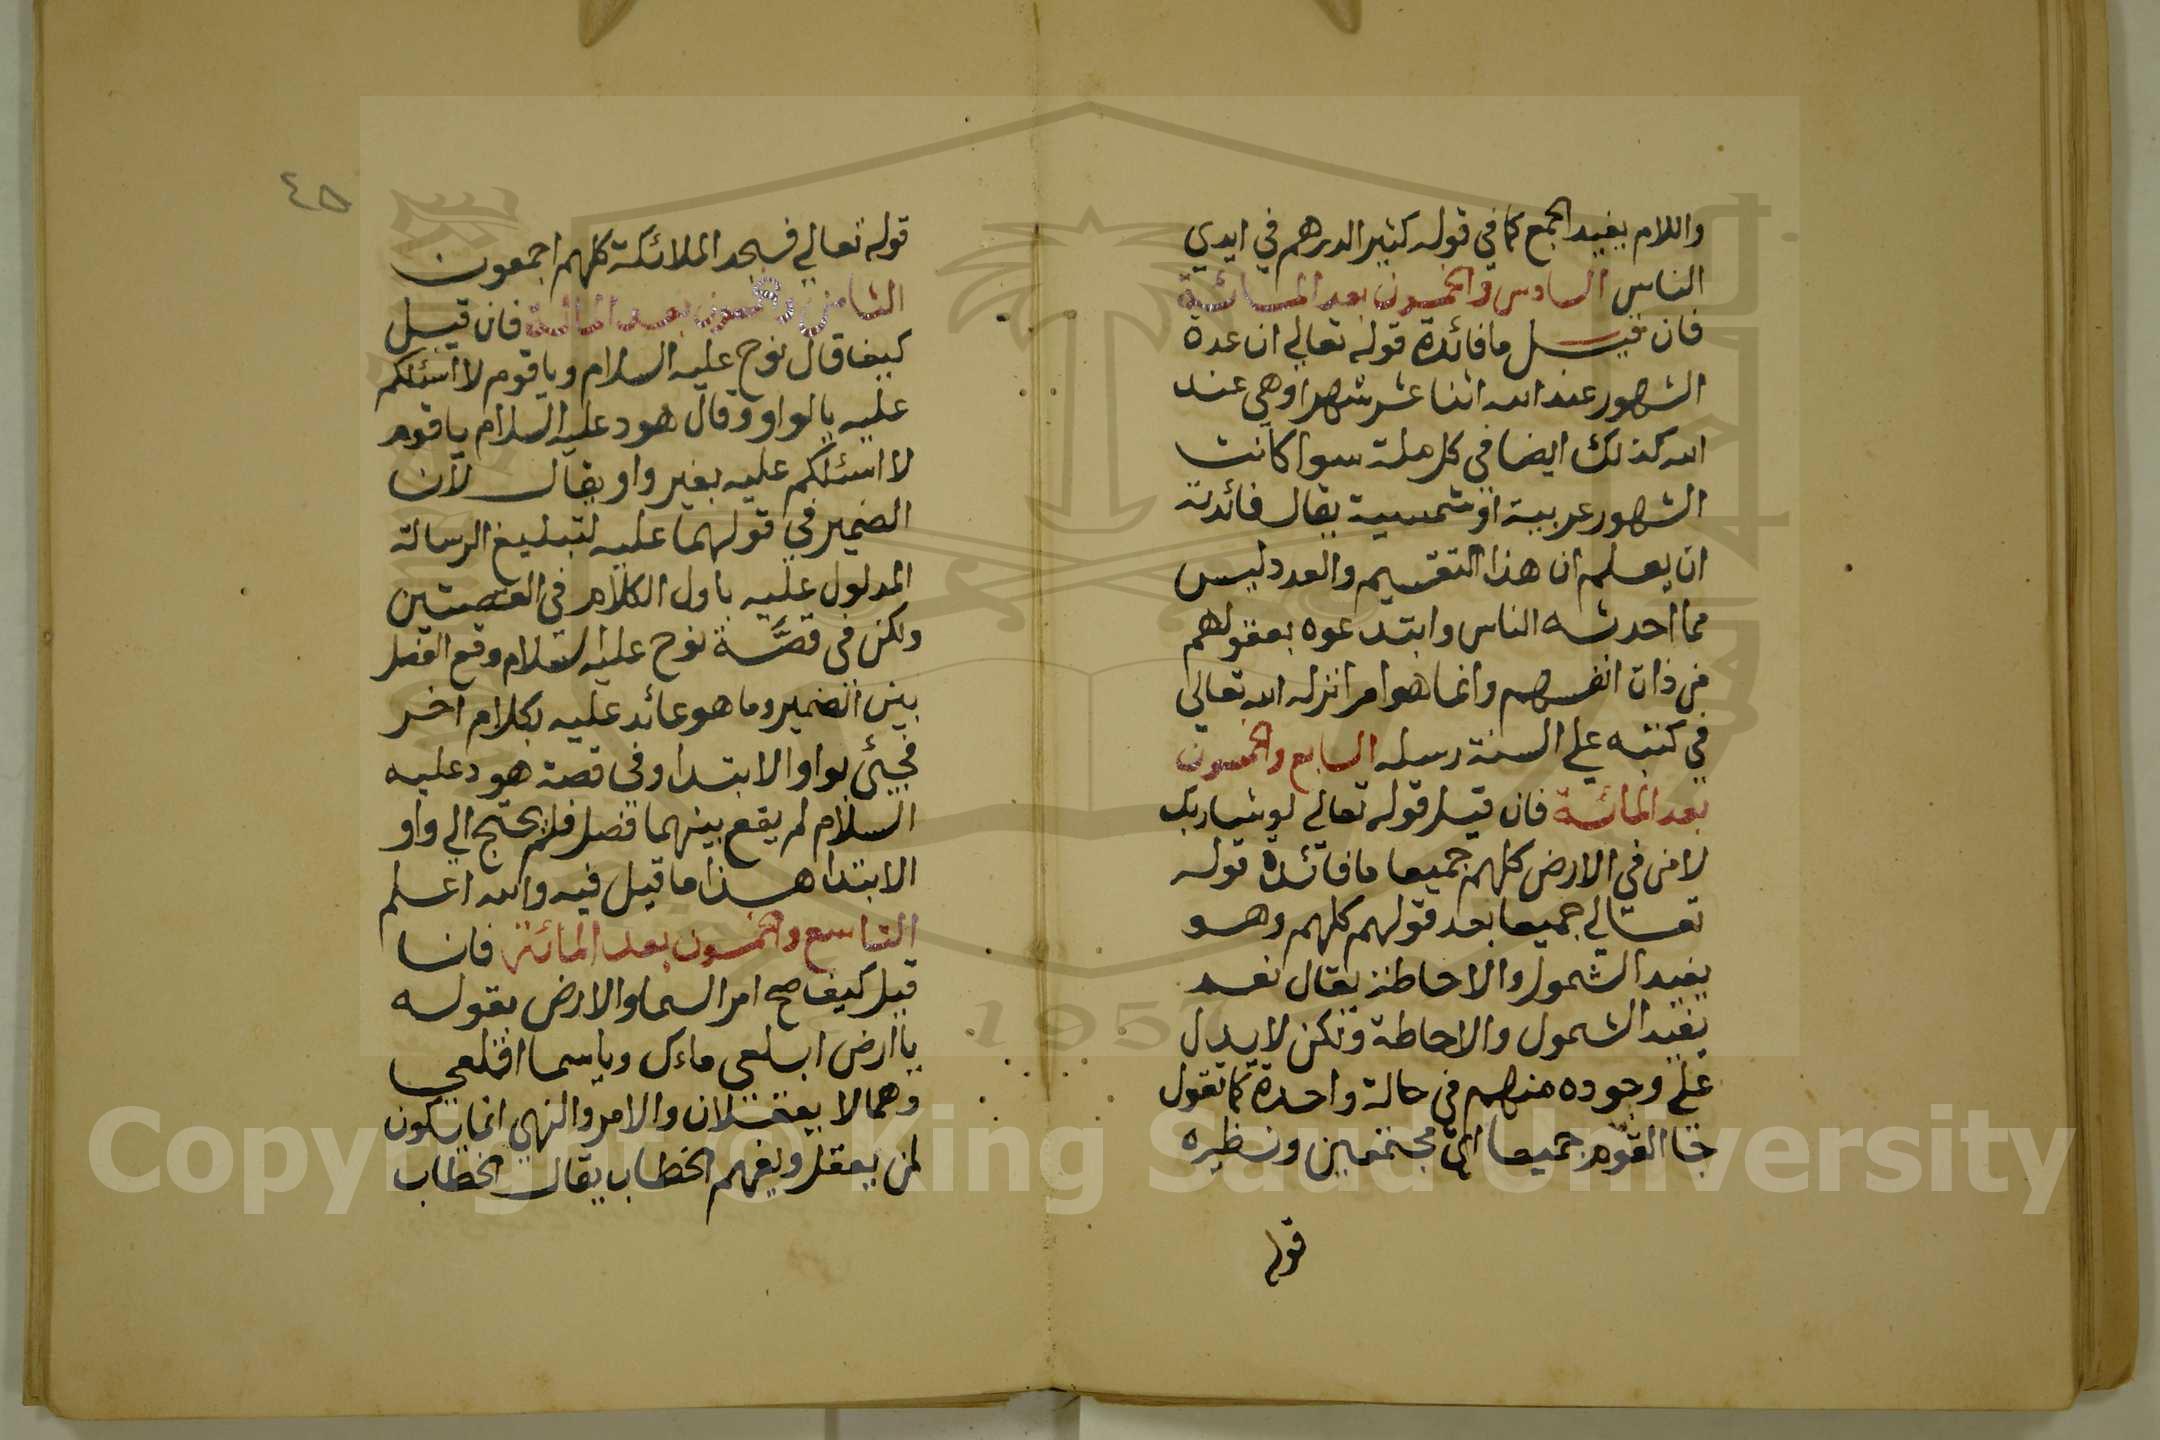 واللام يفيد الجمع كما في قوله كثير الدرهم في ايدي
الناس السادس والخمسون بعد المائة
فان قيل ما فائدة قوله تعالي ان عدة
الشهور عند الله اثنا عشر شهرا وهي عند
الله كذلك ايضا في كل ملة سوا كانت
الشهور عربية او شمسية يقال فائدته
ان يعلم ان هذا التقسيم والعدد ليس
مما احدثه الناس وابتدعوه بعقولهم
من ذات انفسهم وانما هو امر انزله الله تعالي
في كتبه علي السنة رسله السابع والخمسون
بعد المائة فان قيل قوله تعالي لو شا ربك
لامن في الارض كلهم جميعا ما فائدة قوله
تعالي جميعا بعد قولهم كلهم وهو
يفيد الشمول والاحاطة يقال نعم
يفيد الشمول والاحاطة ولكن لا يدل
علي وجوده منهم في حالة واحدة كما تقول
جا القوم جميعا اي مجتمعين ونظيره
قوله
٤٥
قوله تعالي فسجد الملائكة كلهم اجمعون
الثامن والخمسون بعد المائة فان قيل
كيف قال نوح عليه السلام ويا قوم لا اسئلكم
عليه بالواو وقال هود عليه السلام يا قوم
لا اسئلكم عليه بغير واو يقال لان
الضمير في قولهما عليه لتبليغ الرسالة
المدلول عليه باول الكلام في القصتين
ولكن في قصة نوح عليه السلام وقع الفصل
بين الضمير وما هو عائد عليه بكلام اخر
فجيئ بواو الابتدا وفي قصة هود عليه
السلام لم يقع بينهما فصل فلم يحتج الي واو
الابتدا هذا ما قيل فيه والله اعلم
التاسع والخمسون بعد المائة فان
قيل كيف صح امر السما والارض بقوله
يا ارض ابلعي ماءك ويا سما اقلعي
وهما لا يعقلان والامر والنهي انما يكون
لمن يعقل ويفهم الخطاب يقال الخطاب
1957
Copyright © King Saud University